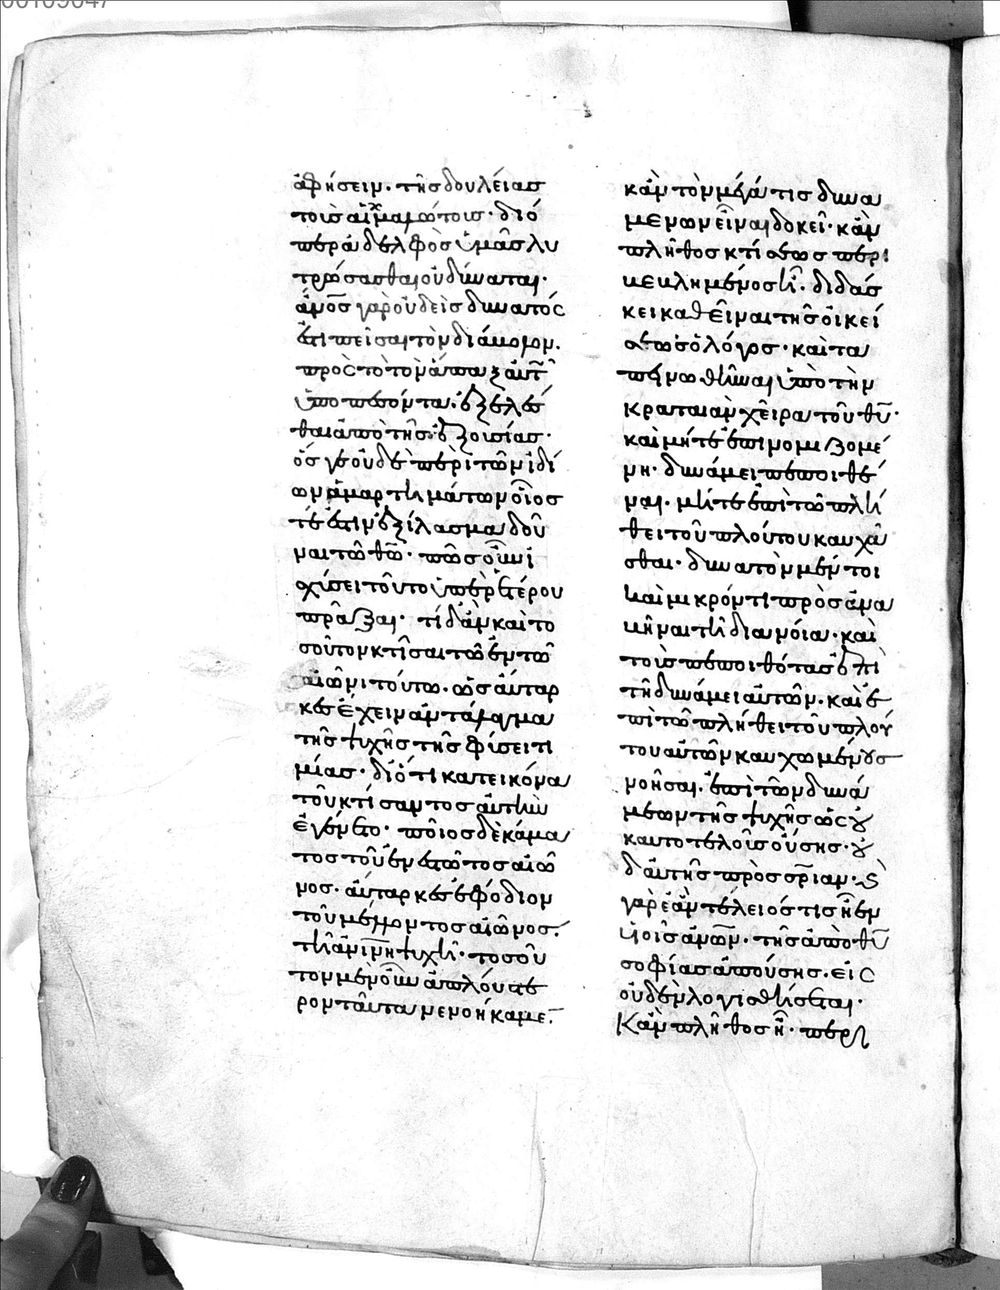 ἀφήσειν. τῆς δουλείας
τοῖς αἰχμαλώτοις· διό
περ ἀδελφὸς ὑμᾶς λυ
τρώσασθαι οὐ δύναται·
ἀνο̅ς γὰρ οὐδεὶς δυνατός
ἐστι πεῖσαι τὸν διάβολον.
πρὸς τὸ τὸν ἅπαξ αὐτῶ
ὑποπεσόντα. ἐξελέ
σθαι ἀπὸ τῆς ἐξουσίας·
ὅς γε οὐδὲ περὶ τῶν ἰδί
ων ἁμαρτημάτων οἷός
τέ ἐστιν ἐξίλασμα δοῦ
ναι τῶ θῶ· πῶς οὖν ἰ
σχύσει τοῦτο ὑπὲρ ἑτέρου
πρᾶξαι· τί δ' ἂν καὶ το
σοῦτον κτῆσαι τῶ ἐν τῶ
αἰῶνι τούτω. ὡς αὔταρ
κες ἔχειν ἀντάλλαγμα
τῆς ψυχῆς τῆς φύσει τι
μίας· διότι κατ' εἰκόνα
τοῦ κτίσαντος αὐτὴν
ἐγένετο· ποῖος δὲ κάμα
τος τοῦ ἐνεστῶτος αἰῶ
νος. αὔταρκες ἐφόδιον
τοῦ μέλλοντος αἰῶνος.
τῆ ἀνίνη ψυχῆ· τοσοῦ
τον μὲν οὖν ἁπλούστε
ρον ταῦτα νενοήκαμεν.
κἂν τῶν μεγά τις δυνα
μένων εἶναι δοκεῖ· κἂν
πλῆθος κτήσεως περι
κεκλημένος ἦ. διδάσ
κει καθεῖναι τῆς οἰκεί
σεως ὁ λόγος· καὶ τα
πεινωθῆναι ὑπὸ τὴν
κραταιὰν χεῖρα τοῦ θυ̅·
καὶ μήτε ἐπινομιζομέ
νη. δυνάμει πεποιθέ
ναι. μήτε ἐπὶ τῶ πλή
θει τοῦ πλούτου καυχᾶ
σθαι. δυνατὸν μέντοι
καὶ μικρόν τι προσανα
κῆναι τῆ διανοία. καὶ
τοὺς πεποιθότας ἐπὶ
τῆ δυνάμει αὐτῶν. καὶ ἐ
πὶ τῶ πλήθει τοῦ πλού
του αὐτῶν καυχωμένους
νοῆσαι. ἐπὶ τῶν δυνά
μεων τῆς ψυχῆς ὡς οὐ
κ αυτοτελοῖς οὔσης. οὐ
δ' αὐτῆς πρὸς σρ̅ιαν. καὶ
γὰρ ἐάν τέλειός τις ἦ ἐν
υἱοῖς ἀνω̅ν. τῆς ἀπὸ θυ̅
σοφίας ἀπούσης. εἰς
οὐδὲν λογισθήσεται.
Κἂν πλῆθος ἦ. περι